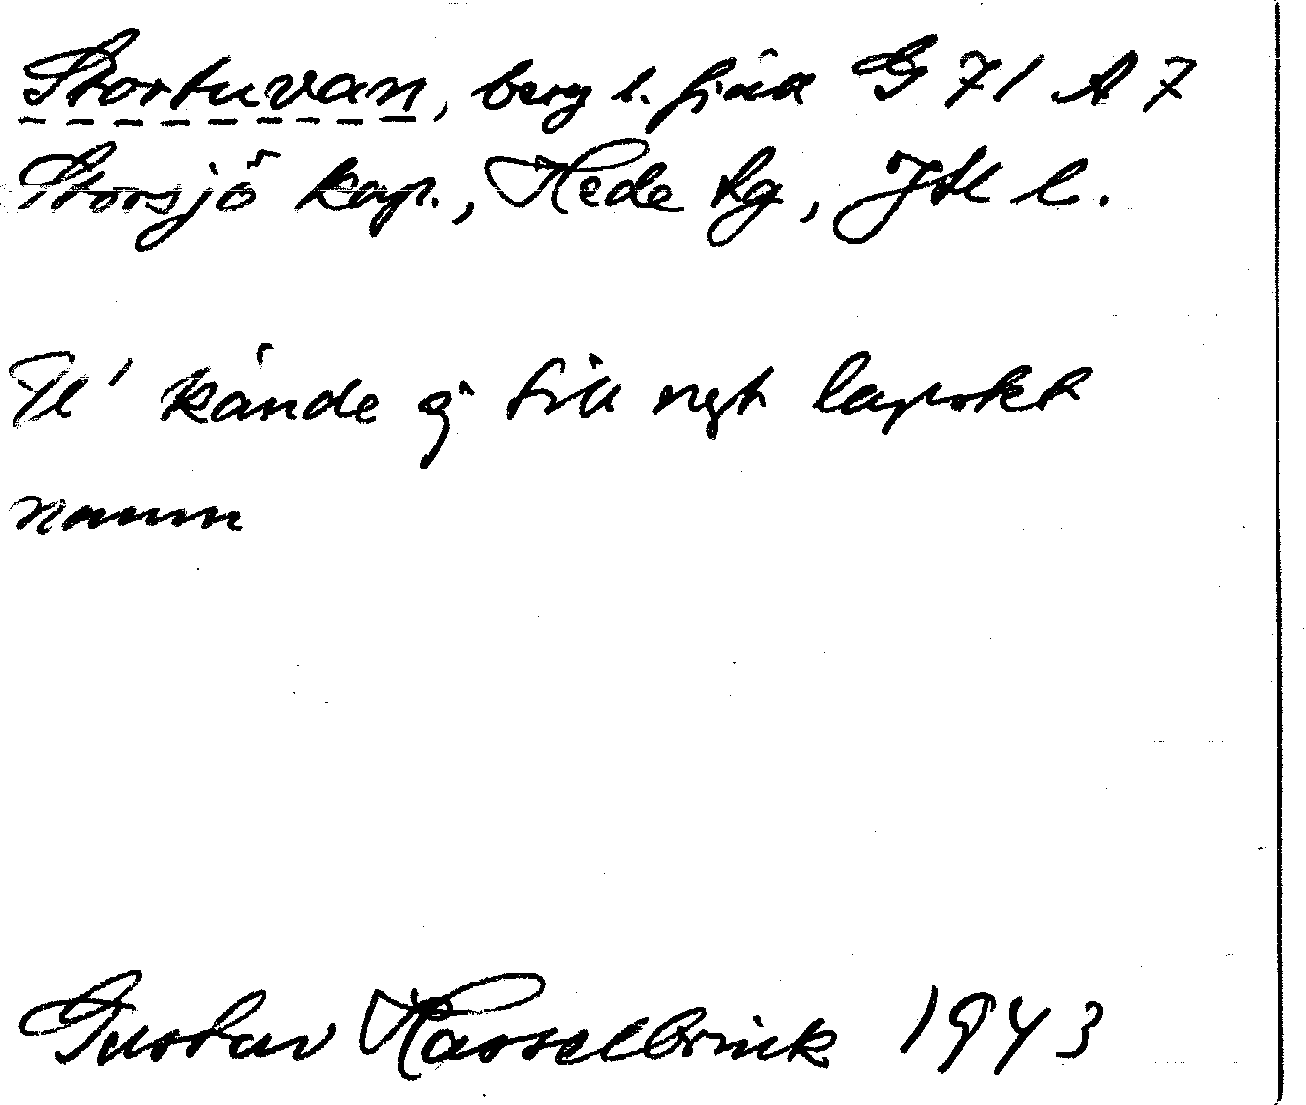 Stortuvan, berg l. fjäll G 71 A 7
Storsjö kap., Hede tg, Jtl l.
kände ej till ngt lapskt
namn
Gustav Hasselbrink 1943